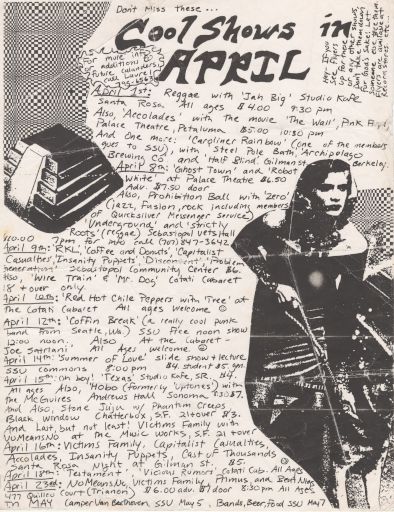 Don't Miss these...
Cool Shows in
APRIL
For more info
additions &
Future calendars
call Laurel
If you
See Flyers
up for these
or any other shows,
Don't take them down
for God's sake! Let
Someone else see them.
Flyers are available at
Record stores etc...
April 1st: Reggae with 'Jah Big' Studio Kafe
Santa Rosa All ages $4.00 9:30 pm
Also, 'Accolades' with the movie 'The Wall', Pink Floyd
Palace Theatre, Petaluma $5.00 10:30 pm
And one more: 'Cargliner Rainbow' (one of the members
goes to SSU), with Steel Pole Bath, Archipelago
Brewing Co. and 'Half Blind. Gilman St. Berkeley.
April 8th: 'Ghost Town' and 'Robot
White' at Palace Theatre $6.50
Adv. $7.50 door
Also, Prohibition Ball with 'Zero'
(jazz, Fusion, rock including members
of Quicksilver Messenger Service)
'Underground' and 'strictly
Roots' (reggae) Sebastopol Vets Hall
$10.00 7pm for info call (707) 847-3642
April 9th: 'RKL', 'Coffee and Donuts', 'Capitalist
Casualties', 'Insanity Puppets', 'Discontent', 'Problem
generation' Sebastopol Community Center $6.
Also, 'Wire Train' & 'Mr. Dog', Cotati Cabaret
18 + over only
April 10th: 'Red Hot Chile Peppers with 'Tree' at
The Cotati Cabaret All ages welcome ☺
April 12th: 'Coffin Break' (a really cool punk
band from Seattle, Wa.) SSU Free noon show
12:00 noon. Also At the Cabaret -
Joe Satriani All Ages welcome. ☺
April 14th: 'Summer of Love' slide show + lecture
SSU commons 8:00 pm $4. student $5. gn.
April 15th: oh boy! 'Texas' Studio Kafe, SR. $4.
All ages Also, 'Hobo' (formerly 'Uptones') with
the McGuires Andrews Hall Sonoma 7:30 $7.
And Also, Stone Juju w/ Phantom Creeps
Black Window Chatterbox, S.F. 21 + over $3.
And Last, but not least! Victims Family with
NoMeansNo at the Music works, S.F. 21 + over
April 16th: Victims Family, Capitalist Casualties,
Accolades, Insanity Puppets, Cast of Thousands
"Santa Rosa Night at Gilman St. $5. ☺
April 18th: 'Testament', 'Vicious Rumors' Cotati Cab. All Ages
April 23rd: NoMeansNo, Victims Family, Primus, and Beat Nigs
477 Guillou Court (Trianon) $6.00 adv. $7 door 8:30 pm All Ages
IN MAY Camper Van Beethoven, SSU May 5, Bands, Beer, Food SSU May 7